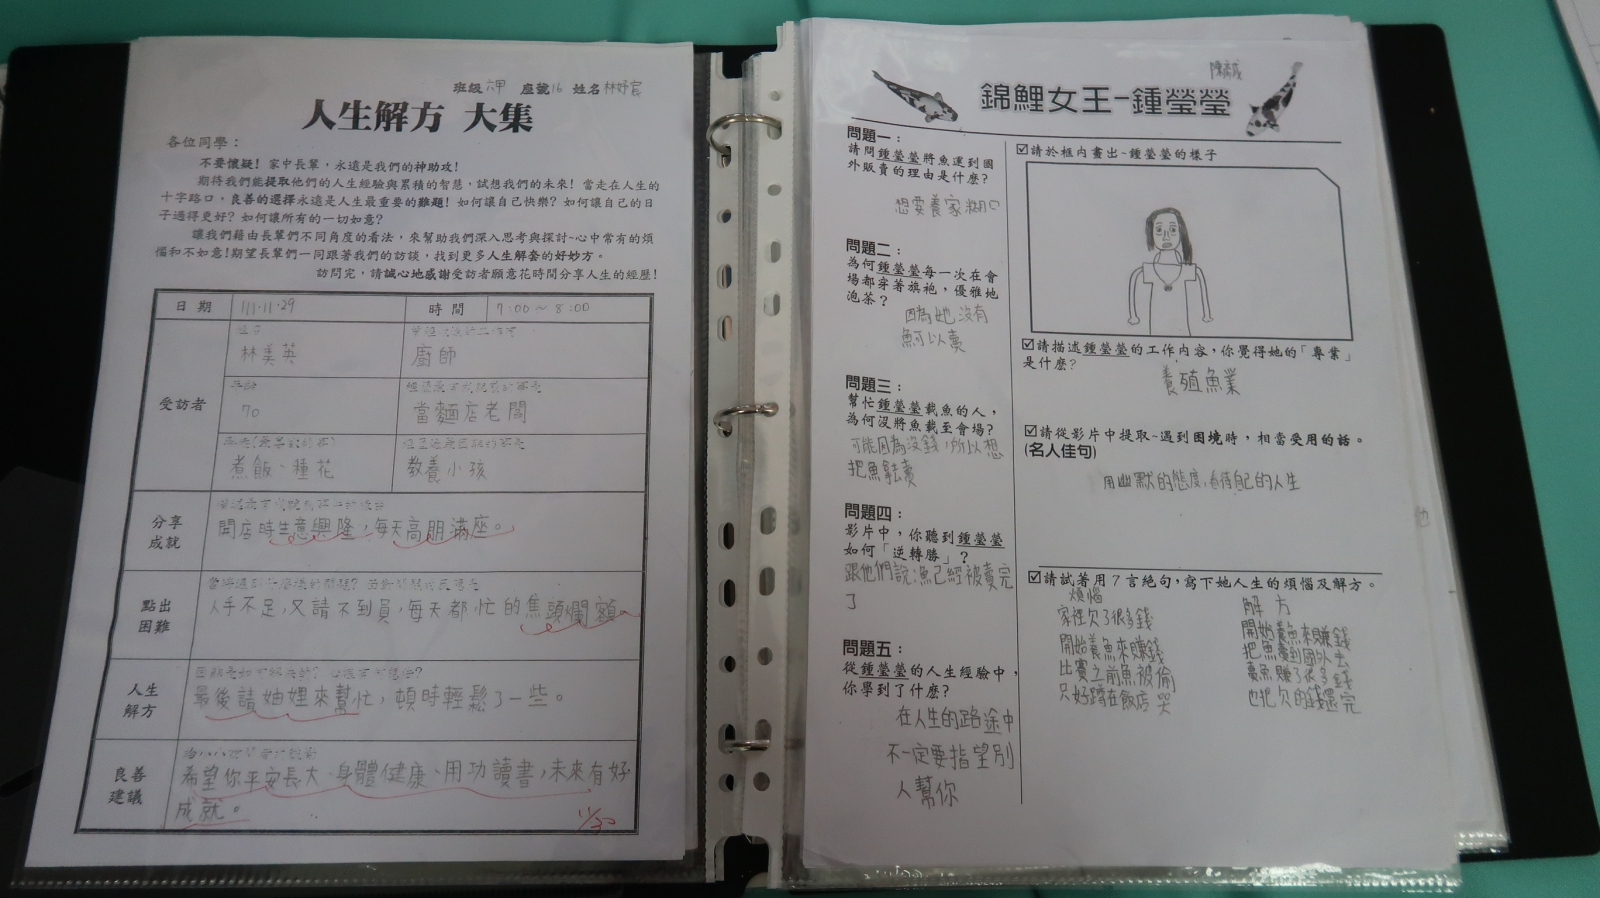 班級六甲 座號16 姓名林妤宸
人生解方 大集
各位同學：
不要懷疑! 家中長輩，永遠是我們的神助攻!
期待我們能提取他們的人生經驗與累積的智慧，試想我們的未來! 當走在人生的
十字路口，良善的選擇永遠是人生最重要的難題! 如何讓自己快樂? 如何讓自己的日
子過得更好? 如何讓所有的一切如意?
讓我們藉由長輩們不同角度的看法，來幫助我們深入思考與探討~心中常有的煩
惱和不如意!期望長輩們一同跟著我們的訪談，找到更多人生解套的好妙方。
訪問完，請誠心地感謝受訪者願意花時間分享人生的經歷!
日期 111.11.29 時間 7:00~8:00
受訪者
林美英 廚師
年齡
70 當麵店老闆
煮飯、種花 教養小孩
分享
成就
開店時生意興隆，每天高朋滿座。
點出
困難
人手不足，又請不到員，每天都忙的焦頭爛額。
人生
解方
最後請妯娌來幫忙，頓時輕鬆了一些。
良善
建議
希望你平安長大、身體健康、用功讀書，未來有好
成就。
11/30
錦鯉女王-鍾瑩瑩
問題一：
請問鍾瑩瑩將魚運到國
外販賣的理由是什麼?
想要養家糊口
問題二：
為何鍾瑩瑩每一次在會
場都穿著旗袍，優雅地
泡茶？
因為她沒有
魚可以賣
問題三：
幫忙鍾瑩瑩載魚的人，
為何沒將魚載至會場?
可能因為沒錢，所以想
把魚拿去賣
問題四：
影片中，你聽到鍾瑩瑩
如何「逆轉勝」？
跟他們說漁已經被賣完
了
問題五：
從鍾瑩瑩的人生經驗中，
你學到了什麼?
在人生的路途中
不一定要指望別
人幫你
☑請於框內畫出~鍾瑩瑩的樣子
☑請描述鍾瑩瑩的工作內容，你覺得她的「專業」
是什麼?
養殖魚業
☑請從影片中提取~遇到困境時，相當受用的話。
(名人佳句)
用幽默的態度，看待自己的人生
☑請試著用7言絕句，寫下她人生的煩惱及解方。
煩惱
家裡欠了很多錢
開始養魚來賺錢
比賽之前魚被偷
只好蹲在飯店哭
解方
開始養魚來賺錢
把魚賣到國外去
賣魚賺了很多錢
也把欠的錢還完